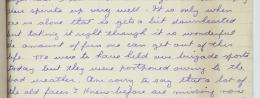 our spirits up very well. It is only when
one is alone that he gets a bit downhearted
but taking it right through it is wonderful
the amount of fun one can get out of this
life. We were to have held our brigade sports
today but they were postponed owing to the
bad weather. Am sorry to say that a lot of
the old faces I knew before are missing now